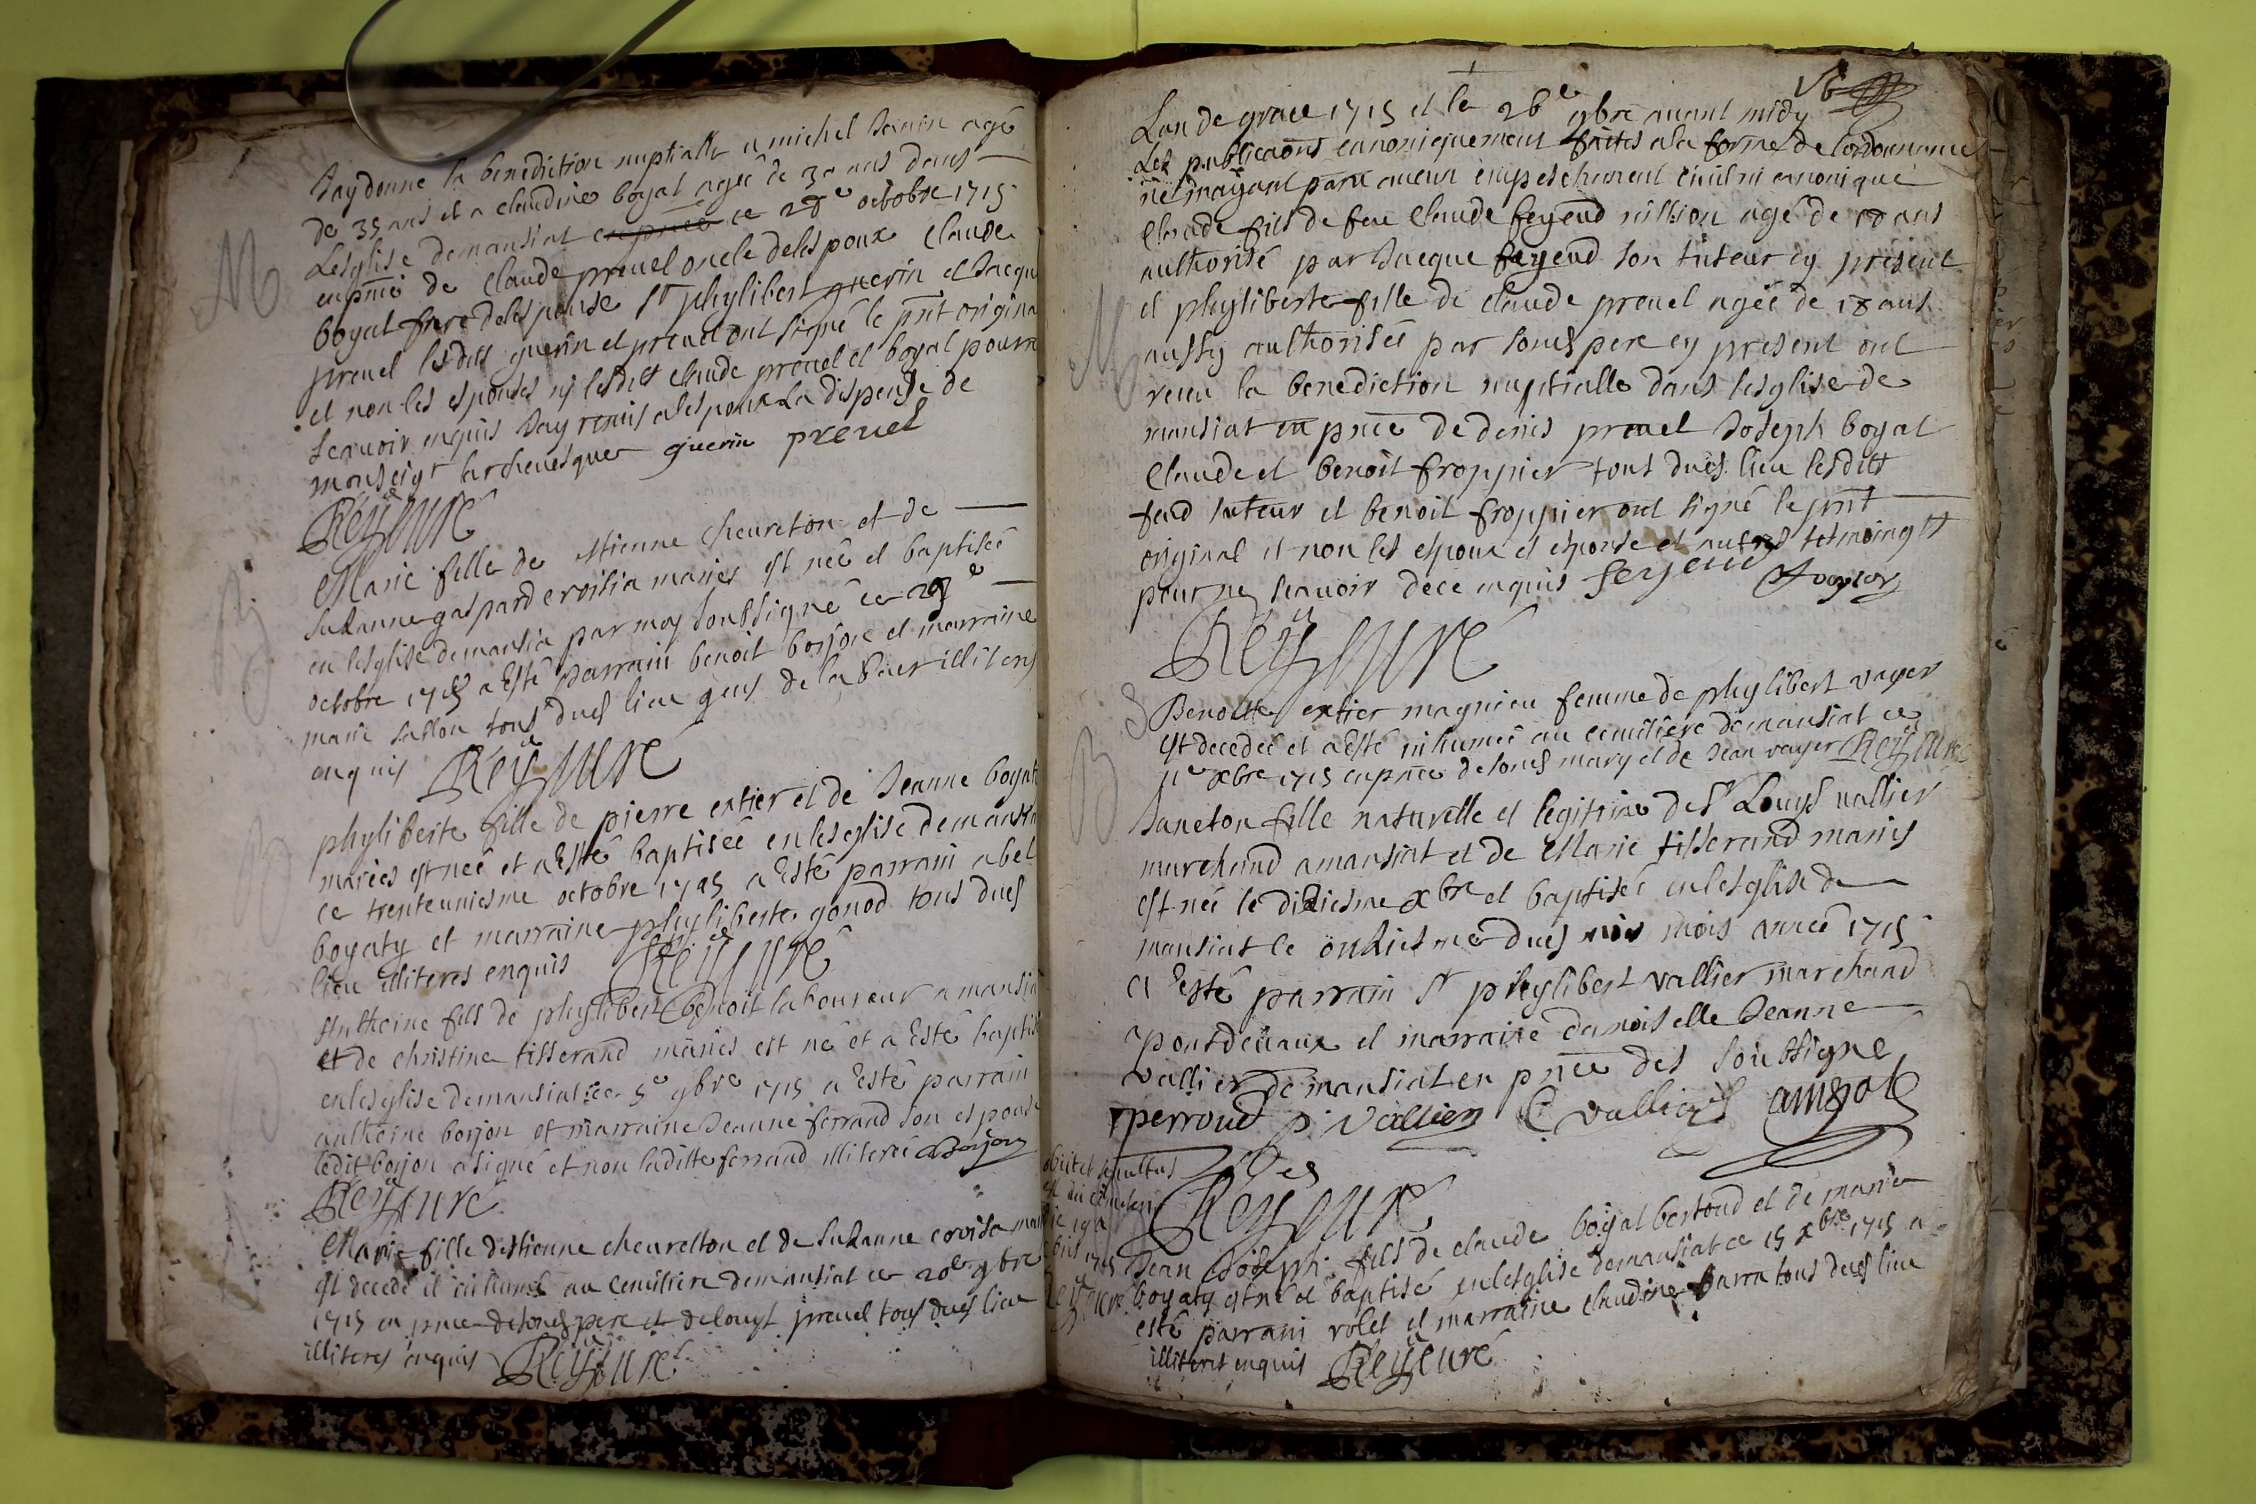 M
Jay donné la benediction nuptialle a michel Janin agé
de 35 ans et a claudine boyat agée de 30 ans dans
Lesglise demansiat ce 28e octobre 1715
en pnce de Claude preuel oncle delespoux Claude
boyat frere delespouse Sr phylibert guerin et Jacque
preuel lesdits guerin et preuel ont signé le pnt origina
et non les espouses nj lesdits claude preuel et boyat pour ne
scauoir enquis Jay remis alespoux La dispense de
monseigr larcheuesque guerin preuel
Rey Curé
B
Marie fille de estienne cheureton et de
suzanne gaspard croisia maries est née et baptisée
en lesglise demansia par moy soubsigné ce 29e
octobre 1715 a esté parrain benoit borjon et marraine
marie sallon tous dues lieu gens de labeur illiteres
enquis Rey Curé
B
phyliberte fille de pierre extier et de Jeanne boyat
maries est née et a esté baptisée en lesglise demansia
ce trenteuniesme octobre 1715 a esté parrain abel
boyaty et marraine phyliberte gonod tous dues
lieu illiteres enquis Rey Curé
B
Anthoine fils de phylibert benoit laboureur a mansia
et de christine tisserand maries est né et a esté baptisé
en lesglise demansiat ce 5e 9bre 1715 a esté parrain
anthoine borjon et marraine Jeanne ferrand son espouse
ledit borjon a signé et non laditte ferrand illiterée aBorjon
Rey Curé
Marie fille destienne cheurelton et de suzanne croisia
est decedé et inhumé au cemittiere demansiat ce 20e 9bre
1715 en pnce de sondt pere et de louys preuel tous dues lieu
illiteres enquis Rey Curé
Lan de grace 1715 et le 26e 9bre auant midy
Les publicaons canoniquement faittes a la forme de lordonnance
ne mayant paru aucun empeschement ciuil ni canonique
M
Claude fils de feu Claude feyend million agé de 18 ans
authorisé par Jacque feyend son tuteur cy présent
et phyliberte fille de claude preuel agée de 18 ans
aussy authorisée par sondt pere cy present ont
receu la benediction nuptialle dans lesglise de
mansiat en pnce de denis preuel Joseph boyat
Claude et benoit froppier tous dues lieu lesdits
fend tuteur et benoit froppier ont signé le pnt
original et non les espoux et espouse et autres tesmoings
pour ne scauoir de ce enquis feyend
Rey Curé
S
Benoitte extier magnien femme de phylibert vayer
est decedée et a esté inhumée au cemittiere demansiat ce
11e xbre 1715 en pnce de sondt mary et de Jean vayer Rey Curé
B
Janeton fille naturelle et legitime de Sr Louys vallier
marchand a mansiat et de Marie tisserand maries
est née le dixiesme xbre et baptisée en lesglise de
mansiat le onziesme dues mois année 1715
a esté parrain Sr phylibert vallier marchand
pontdeuaux et marraine damoiselle Jeanne
vallier de mansiat en pnce des soubsigne
perroud p. vallier C vallier
Rey Curé
Jean Joseph fils de claude boyat bertoud et de marie
boyaty est né et baptisé en lesglise demansiat ce 15 xbre 1715 a
esté parrain rolet et marraine claudine barra tous dues lieu
illiteres enquis Rey Curé